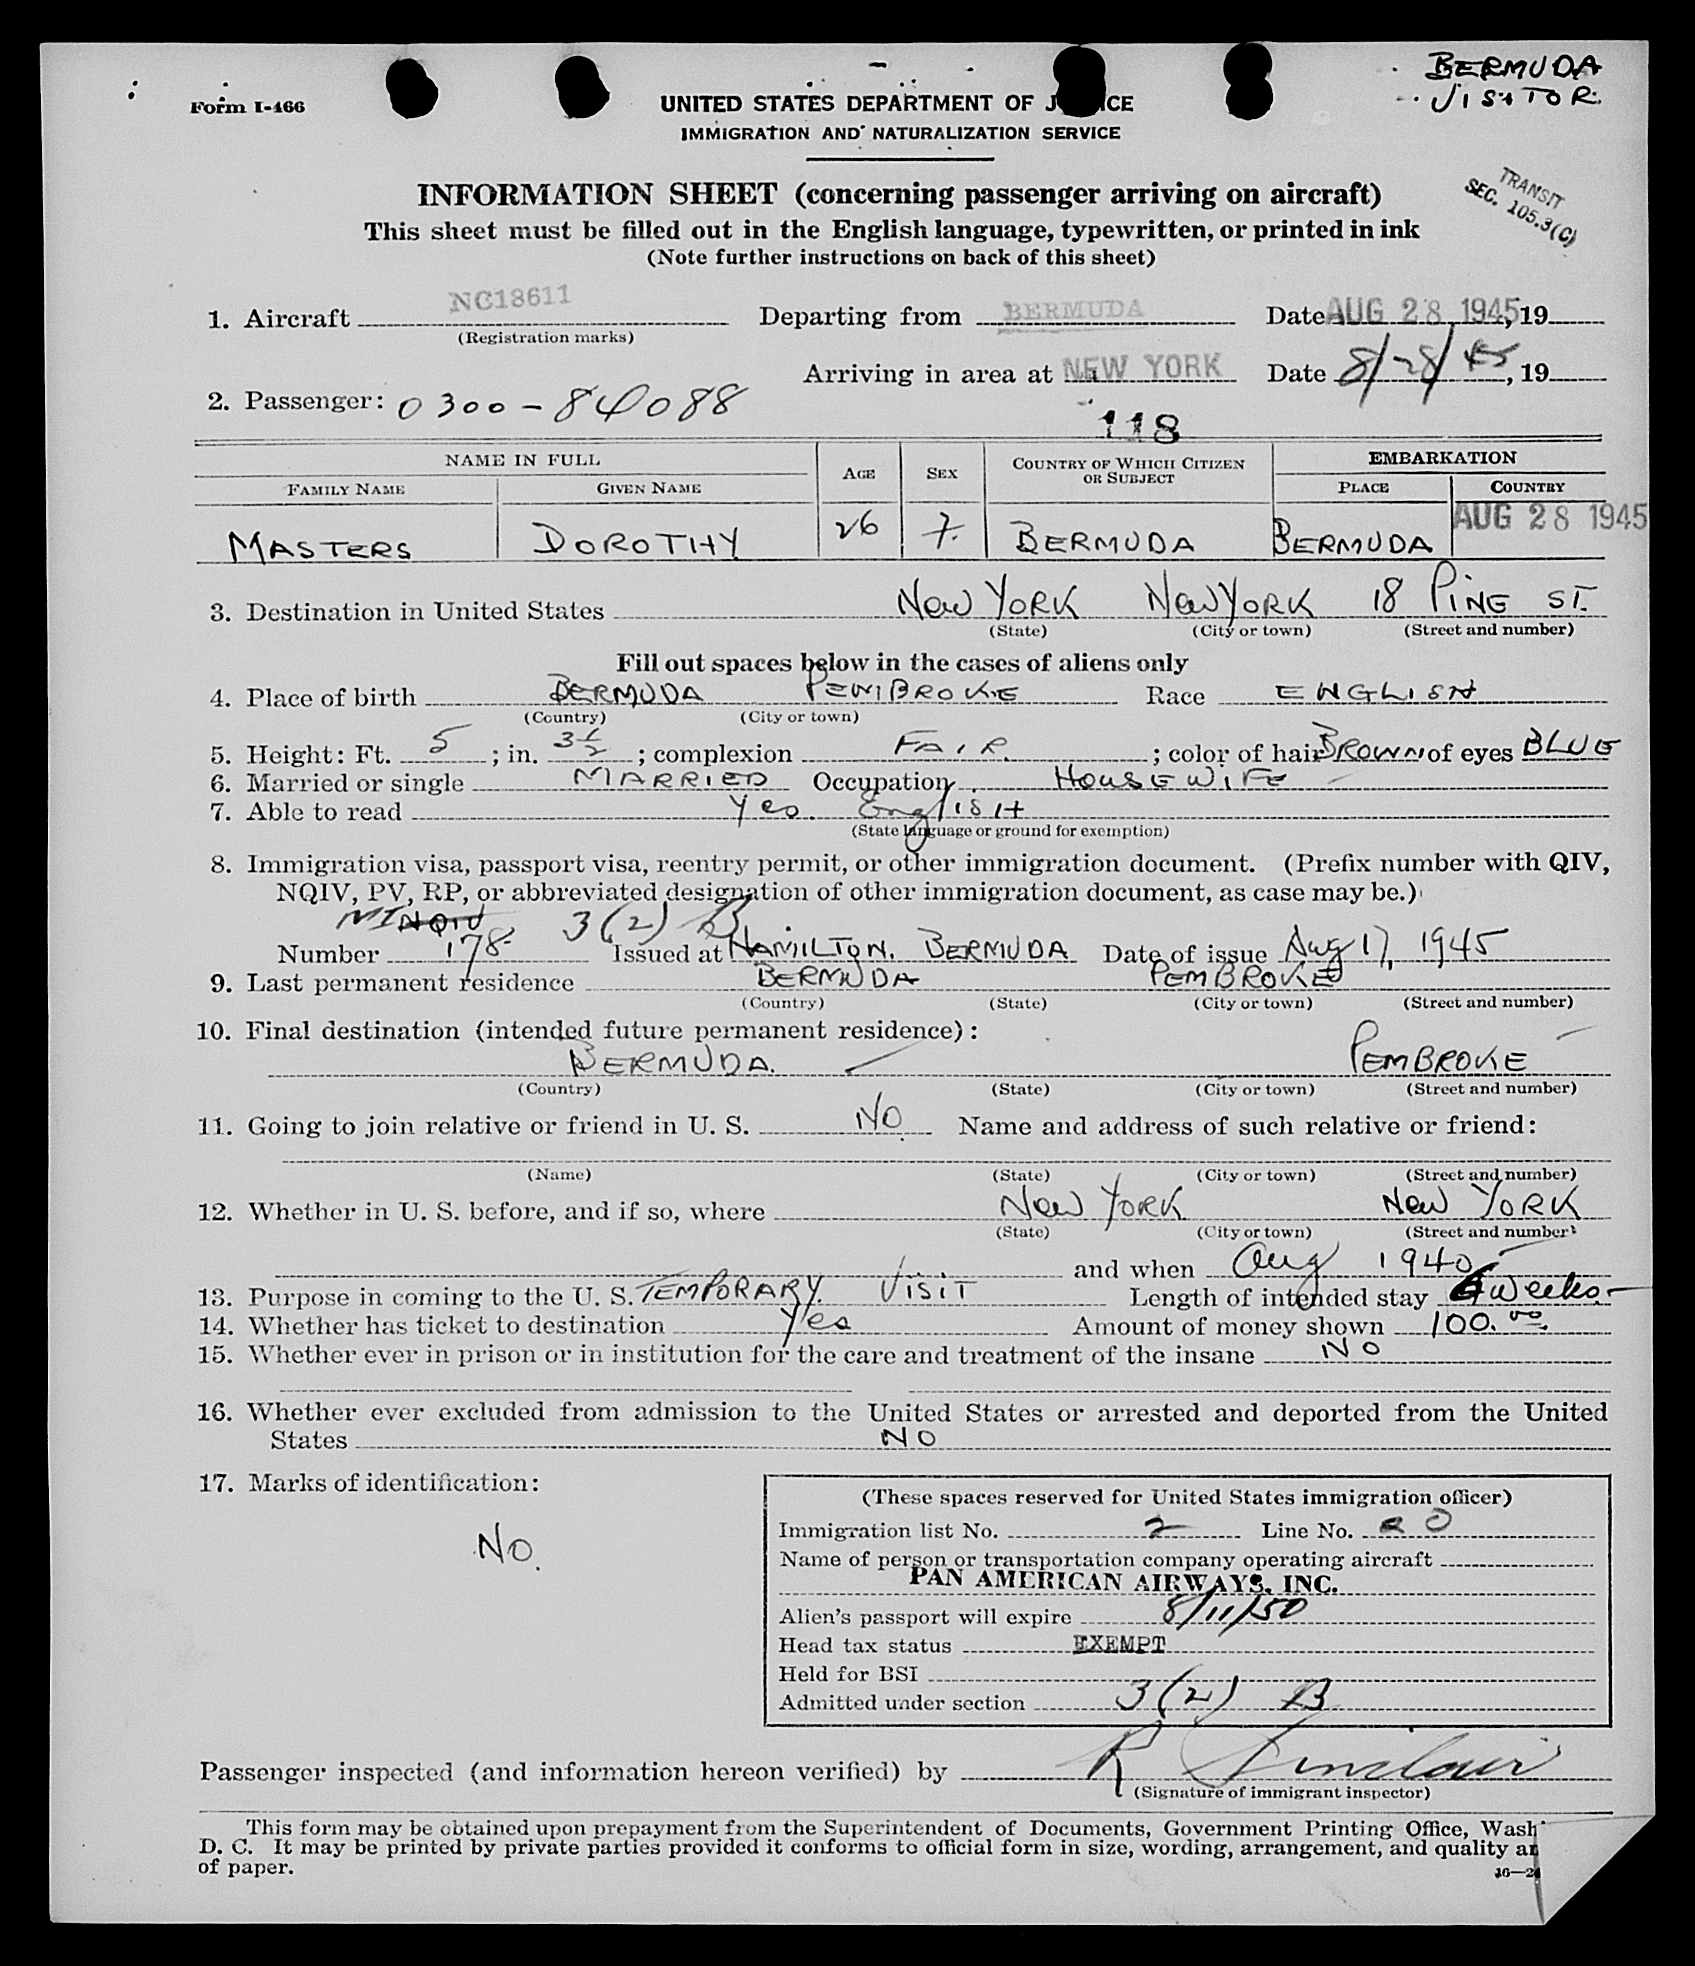 BERMUDA
VISITOR.
Form I-466
UNITED STATES DEPARTMENT OF J CE
IMMIGRATION AND NATURALIZATION SERVICE
TRANSIT
SEC. 105.3(C)
INFORMATION SHEET (concerning passenger arriving on aircraft)
This sheet must be filled out in the English language, typewritten, or printed in ink
(Note further instructions on back of this sheet)
1. Aircraft NC18611 Departing from BERMUDA Date AUG 28 1945, 19
(Registration marks)
Arriving in area at NEW YORK Date 8/28/45, 19
2. Passenger: 0300-84088
118
NAME IN FULL AGE SEX COUNTRY OF WHICH CITIZEN OR SUBJECT EMBARKATION
FAMILY NAME GIVEN NAME PLACE COUNTRY
MASTERS DOROTHY 26 F. BERMUDA BERMUDA AUG 28 1945
3. Destination in United States New YORK New YORK 18 PINE ST.
(State) (City or town) (Street and number)
Fill out spaces below in the cases of aliens only
4. Place of birth BERMUDA PEMBROKE Race ENGLISH
(Country) (City or town)
5. Height: Ft. 5 ; in. 3 1/2 ; complexion FAIR. ; color of hair BROWN of eyes BLUE
6. Married or single MARRIED Occupation HOUSEWIFE
7. Able to read Yes. English
(State language or ground for exemption)
8. Immigration visa, passport visa, reentry permit, or other immigration document. (Prefix number with QIV,
NQIV, PV, RP, or abbreviated designation of other immigration document, as case may be.)
NQIV 3(2) B
Number 178 Issued at HAMILTON. BERMUDA Date of issue Aug 17, 1945
9. Last permanent residence BERMUDA PEMBROKE
(Country) (State) (City or town) (Street and number)
10. Final destination (intended future permanent residence):
BERMUDA. PEMBROKE
(Country) (State) (City or town) (Street and number)
11. Going to join relative or friend in U. S. NO Name and address of such relative or friend:
(Name) (State) (City or town) (Street and number)
12. Whether in U. S. before, and if so, where New YORK New YORK
(State) (City or town) (Street and number)
and when Aug 1940
13. Purpose in coming to the U. S. TEMPORARY. VISIT Length of intended stay weeks
14. Whether has ticket to destination Yes Amount of money shown 100.00
15. Whether ever in prison or in institution for the care and treatment of the insane NO
16. Whether ever excluded from admission to the United States or arrested and deported from the United
States NO
17. Marks of identification:
No.
(These spaces reserved for United States immigration officer)
Immigration list No. 2 Line No.
Name of person or transportation company operating aircraft
PAN AMERICAN AIRWAYS, INC.
Alien's passport will expire 8/11/50
Head tax status EXEMPT
Held for BSI
Admitted under section 3(2) B
Passenger inspected (and information hereon verified) by R Sinclair
(Signature of immigrant inspector)
This form may be obtained upon prepayment from the Superintendent of Documents, Government Printing Office, Wash
D. C. It may be printed by private parties provided it conforms to official form in size, wording, arrangement, and quality an
of paper.
16—2